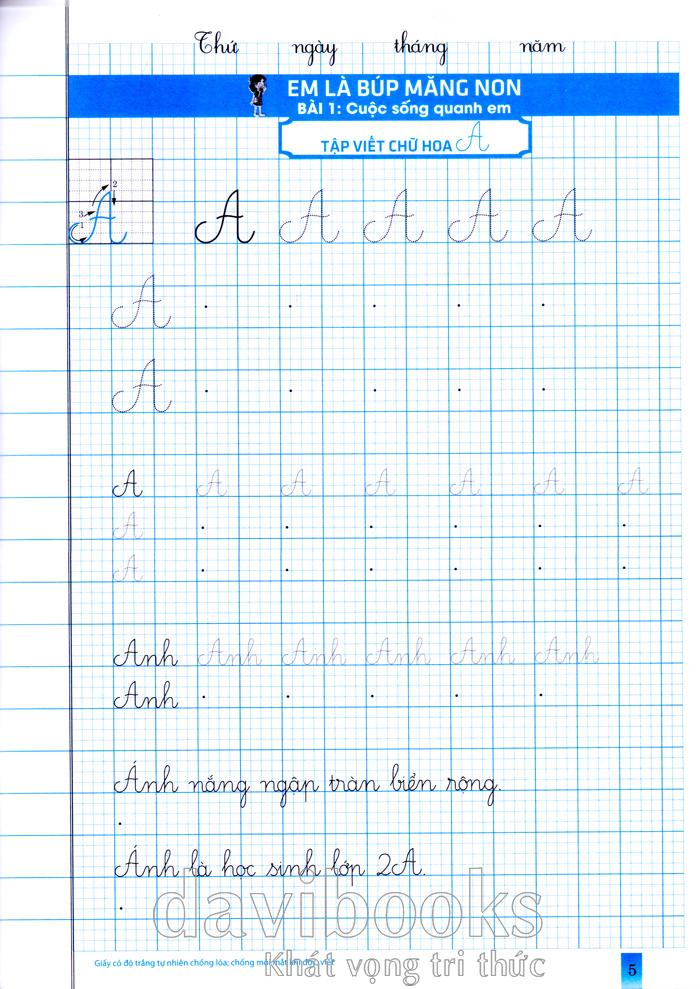 Thứ ngày tháng năm
EM LÀ BÚP MĂNG NON
BÀI 1: Cuộc sống quanh em
TẬP VIẾT CHỮ HOA A
2
3
1
A A A A A A
A
A
A A A A A A A
A
A
Anh Anh Anh Anh Anh Anh
Anh
Ánh nắng ngập tràn biển rộng.
Ánh là học sinh lớp 2A.
davibooks
Khát vọng tri thức
Giấy có độ trắng tự nhiên chống lóa; chống mỏi mắt khi đọc, viết
5